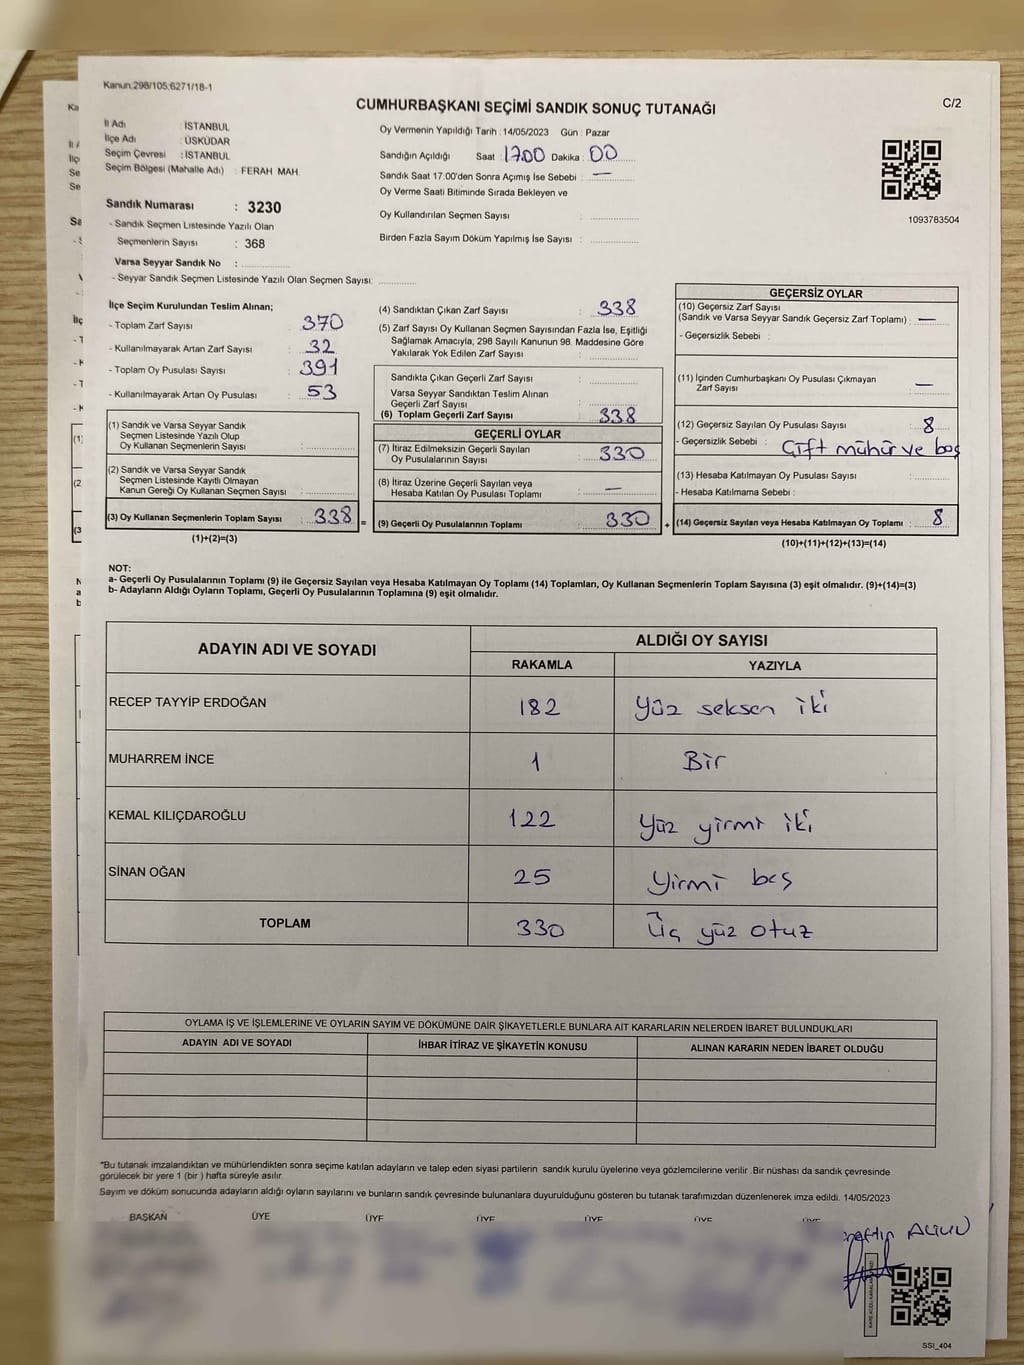 Kanun:298/105;6271/18-1
CUMHURBAŞKANI SEÇİMİ SANDIK SONUÇ TUTANAĞI
C/2
İl Adı : İSTANBUL
İlçe Adı : ÜSKÜDAR
Seçim Çevresi : İSTANBUL
Seçim Bölgesi (Mahalle Adı) : FERAH MAH.
Sandık Numarası : 3230
- Sandık Seçmen Listesinde Yazılı Olan
Seçmenlerin Sayısı : 368
Varsa Seyyar Sandık No :
- Seyyar Sandık Seçmen Listesinde Yazılı Olan Seçmen Sayısı:
Oy Vermenin Yapıldığı Tarih : 14/05/2023 Gün : Pazar
Sandığın Açıldığı Saat : 1700 Dakika : 00
Sandık Saat 17:00'den Sonra Açımış İse Sebebi : —
Oy Verme Saati Bitiminde Sırada Bekleyen ve
Oy Kullandırılan Seçmen Sayısı :
Birden Fazla Sayım Döküm Yapılmış İse Sayısı :
1093783504
İlçe Seçim Kurulundan Teslim Alınan;
- Toplam Zarf Sayısı : 370
- Kullanılmayarak Artan Zarf Sayısı : 32
- Toplam Oy Pusulası Sayısı : 391
- Kullanılmayarak Artan Oy Pusulası : 53
(1) Sandık ve Varsa Seyyar Sandık
Seçmen Listesinde Yazılı Olup
Oy Kullanan Seçmenlerin Sayısı :
(2) Sandık ve Varsa Seyyar Sandık
Seçmen Listesinde Kayıtlı Olmayan
Kanun Gereği Oy Kullanan Seçmen Sayısı :
(3) Oy Kullanan Seçmenlerin Toplam Sayısı : 338 =
(1)+(2)=(3)
(4) Sandıktan Çıkan Zarf Sayısı : 338
(5) Zarf Sayısı Oy Kullanan Seçmen Sayısından Fazla İse, Eşitliği
Sağlamak Amacıyla, 298 Sayılı Kanunun 98. Maddesine Göre
Yakılarak Yok Edilen Zarf Sayısı :
Sandıkta Çıkan Geçerli Zarf Sayısı :
Varsa Seyyar Sandıktan Teslim Alınan
Geçerli Zarf Sayısı :
(6) Toplam Geçerli Zarf Sayısı : 338
GEÇERLİ OYLAR
(7) İtiraz Edilmeksizin Geçerli Sayılan
Oy Pusulalarının Sayısı : 330
(8) İtiraz Üzerine Geçerli Sayılan veya
Hesaba Katılan Oy Pusulası Toplamı : —
(9) Geçerli Oy Pusulalarının Toplamı : 330 +
GEÇERSİZ OYLAR
(10) Geçersiz Zarf Sayısı
(Sandık ve Varsa Seyyar Sandık Geçersiz Zarf Toplamı) : —
- Geçersizlik Sebebi :
(11) İçinden Cumhurbaşkanı Oy Pusulası Çıkmayan
Zarf Sayısı : —
(12) Geçersiz Sayılan Oy Pusulası Sayısı : 8
- Geçersizlik Sebebi : Çift mühür ve boş
(13) Hesaba Katılmayan Oy Pusulası Sayısı :
- Hesaba Katılmama Sebebi :
(14) Geçersiz Sayılan veya Hesaba Katılmayan Oy Toplamı : 8
(10)+(11)+(12)+(13)=(14)
NOT:
a- Geçerli Oy Pusulalarının Toplamı (9) ile Geçersiz Sayılan veya Hesaba Katılmayan Oy Toplamı (14) Toplamları, Oy Kullanan Seçmenlerin Toplam Sayısına (3) eşit olmalıdır. (9)+(14)=(3)
b- Adayların Aldığı Oyların Toplamı, Geçerli Oy Pusulalarının Toplamına (9) eşit olmalıdır.
ADAYIN ADI VE SOYADI
ALDIĞI OY SAYISI
RAKAMLA YAZIYLA
RECEP TAYYİP ERDOĞAN 182 Yüz seksen iki
MUHARREM İNCE 1 Bir
KEMAL KILIÇDAROĞLU 122 Yüz yirmi iki
SİNAN OĞAN 25 Yirmi beş
TOPLAM 330 Üç yüz otuz
OYLAMA İŞ VE İŞLEMLERİNE VE OYLARIN SAYIM VE DÖKÜMÜNE DAİR ŞİKAYETLERLE BUNLARA AİT KARARLARIN NELERDEN İBARET BULUNDUKLARI
ADAYIN ADI VE SOYADI İHBAR İTİRAZ VE ŞİKAYETİN KONUSU ALINAN KARARIN NEDEN İBARET OLDUĞU
*Bu tutanak imzalandıktan ve mühürlendikten sonra seçime katılan adayların ve talep eden siyasi partilerin sandık kurulu üyelerine veya gözlemcilerine verilir .Bir nüshası da sandık çevresinde
görülecek bir yere 1 (bir ) hafta süreyle asılır.
Sayım ve döküm sonucunda adayların aldığı oyların sayılarını ve bunların sandık çevresinde bulunanlara duyurulduğunu gösteren bu tutanak tarafımızdan düzenlenerek imza edildi. 14/05/2023
BAŞKAN ÜYE ÜYE ÜYE ÜYE ÜYE ÜYE
SSI_404